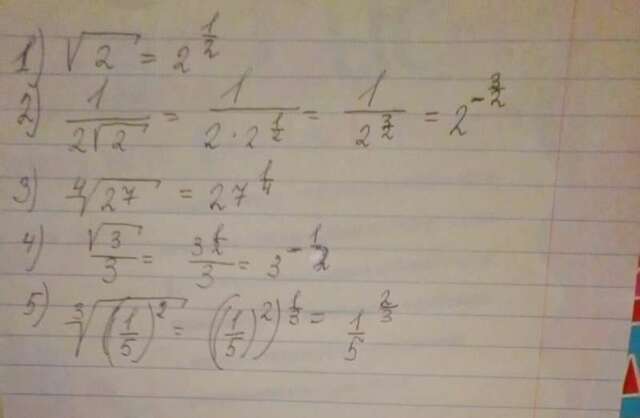 1) √2 = 2^(1/2)
2) 1/(2√2) = 1/(2·2^(1/2)) = 1/(2^(3/2)) = 2^(-3/2)
3) ⁴√27 = 27^(1/4)
4) √3/3 = 3^(1/2)/3 = 3^(-1/2)
5) ³√((1/5)²) = ((1/5)²)^(1/3) = 1/5^(2/3)